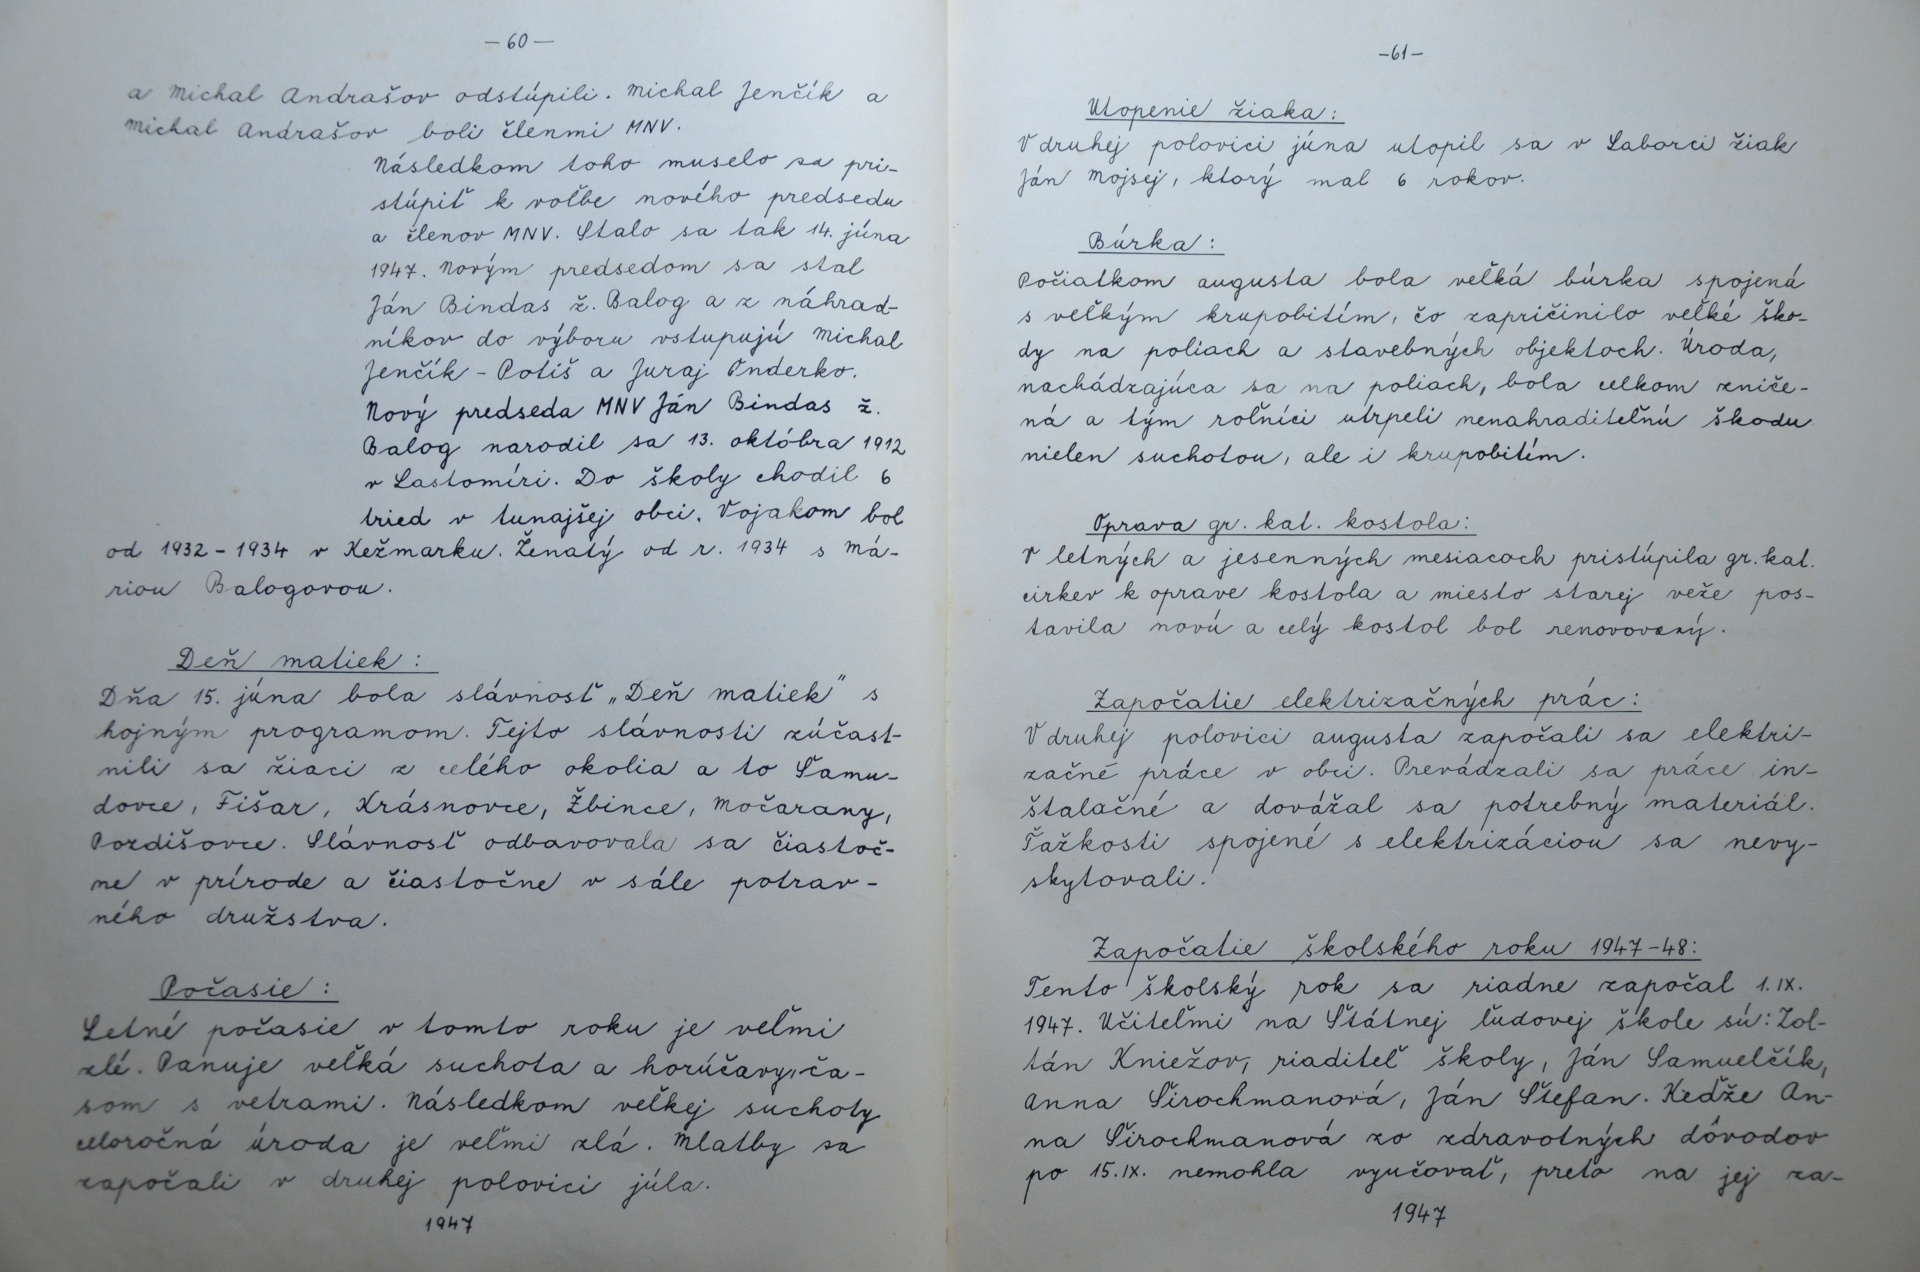 —60—
a Michal Andrašov odstúpili. Michal Jenčík a
Michal Andrašov boli členmi MNV.
Následkom toho muselo sa pri-
stúpiť k voľbe nového predsedu
a členov MNV. Stalo sa tak 14. júna
1947. Novým predsedom sa stal
Ján Bindas ž. Balog a z náhrad-
níkov do výboru vstupujú Michal
Jenčík - Potiš a Juraj Onderko.
Nový predseda MNV Ján Bindas ž.
Balog narodil sa 13. októbra 1912
v Lastomíri. Do školy chodil 6
tried v tunajšej obci. Vojakom bol
od 1932-1934 v Kežmarku. Ženatý od r. 1934 s Má-
riou Balogovou.
Deň matiek:
Dňa 15. júna bola slávnosť „Deň matiek" s
hojným programom. Tejto slávnosti zúčast-
nili sa žiaci z celého okolia a to Šamu-
dovce, Fišar, Krásnovce, Žbince, Močarany,
Pozdišovce. Slávnosť odbavovala sa čiastoč-
ne v prírode a čiastočne v sále potrav-
ného družstva.
Počasie:
Letné počasie v tomto roku je veľmi
zlé. Panuje veľká suchota a horúčavy, ča-
som s vetrami. Následkom veľkej suchoty
celoročná úroda je veľmi zlá. Mlatby sa
započali v druhej polovici júla.
1947
-61-
Utopenie žiaka:
V druhej polovici júna utopil sa v Laborci žiak
Ján Mojsej, ktorý mal 6 rokov.
Búrka:
Počiatkom augusta bola veľká búrka spojená
s veľkým krupobitím, čo zapričinilo veľké ško-
dy na poliach a stavebných objektoch. Úroda,
nachádzajúca sa na poliach, bola celkom zniče-
ná a tým roľníci utrpeli nenahraditeľnú škodu
nielen suchotou, ale i krupobitím.
Oprava gr. kat. kostola:
V letných a jesenných mesiacoch pristúpila gr. kat.
cirkev k oprave kostola a miesto starej veže pos-
tavila novú a celý kostol bol renovovaný.
Započatie elektrizačných prác:
V druhej polovici augusta započali sa elektri-
začné práce v obci. Prevádzali sa práce in-
štalačné a dovážal sa potrebný materiál.
Ťažkosti spojené s elektrizáciou sa nevy-
skytovali.
Započatie školského roku 1947-48:
Tento školský rok sa riadne započal 1. IX.
1947. Učiteľmi na Štátnej ľudovej škole sú: Zol-
tán Kniežov, riaditeľ školy, Ján Samuelčík,
Anna Širochmanová, Ján Štefan. Keďže An-
na Širochmanová zo zdravotných dôvodov
po 15. IX. nemohla vyučovať, preto na jej za-
1947